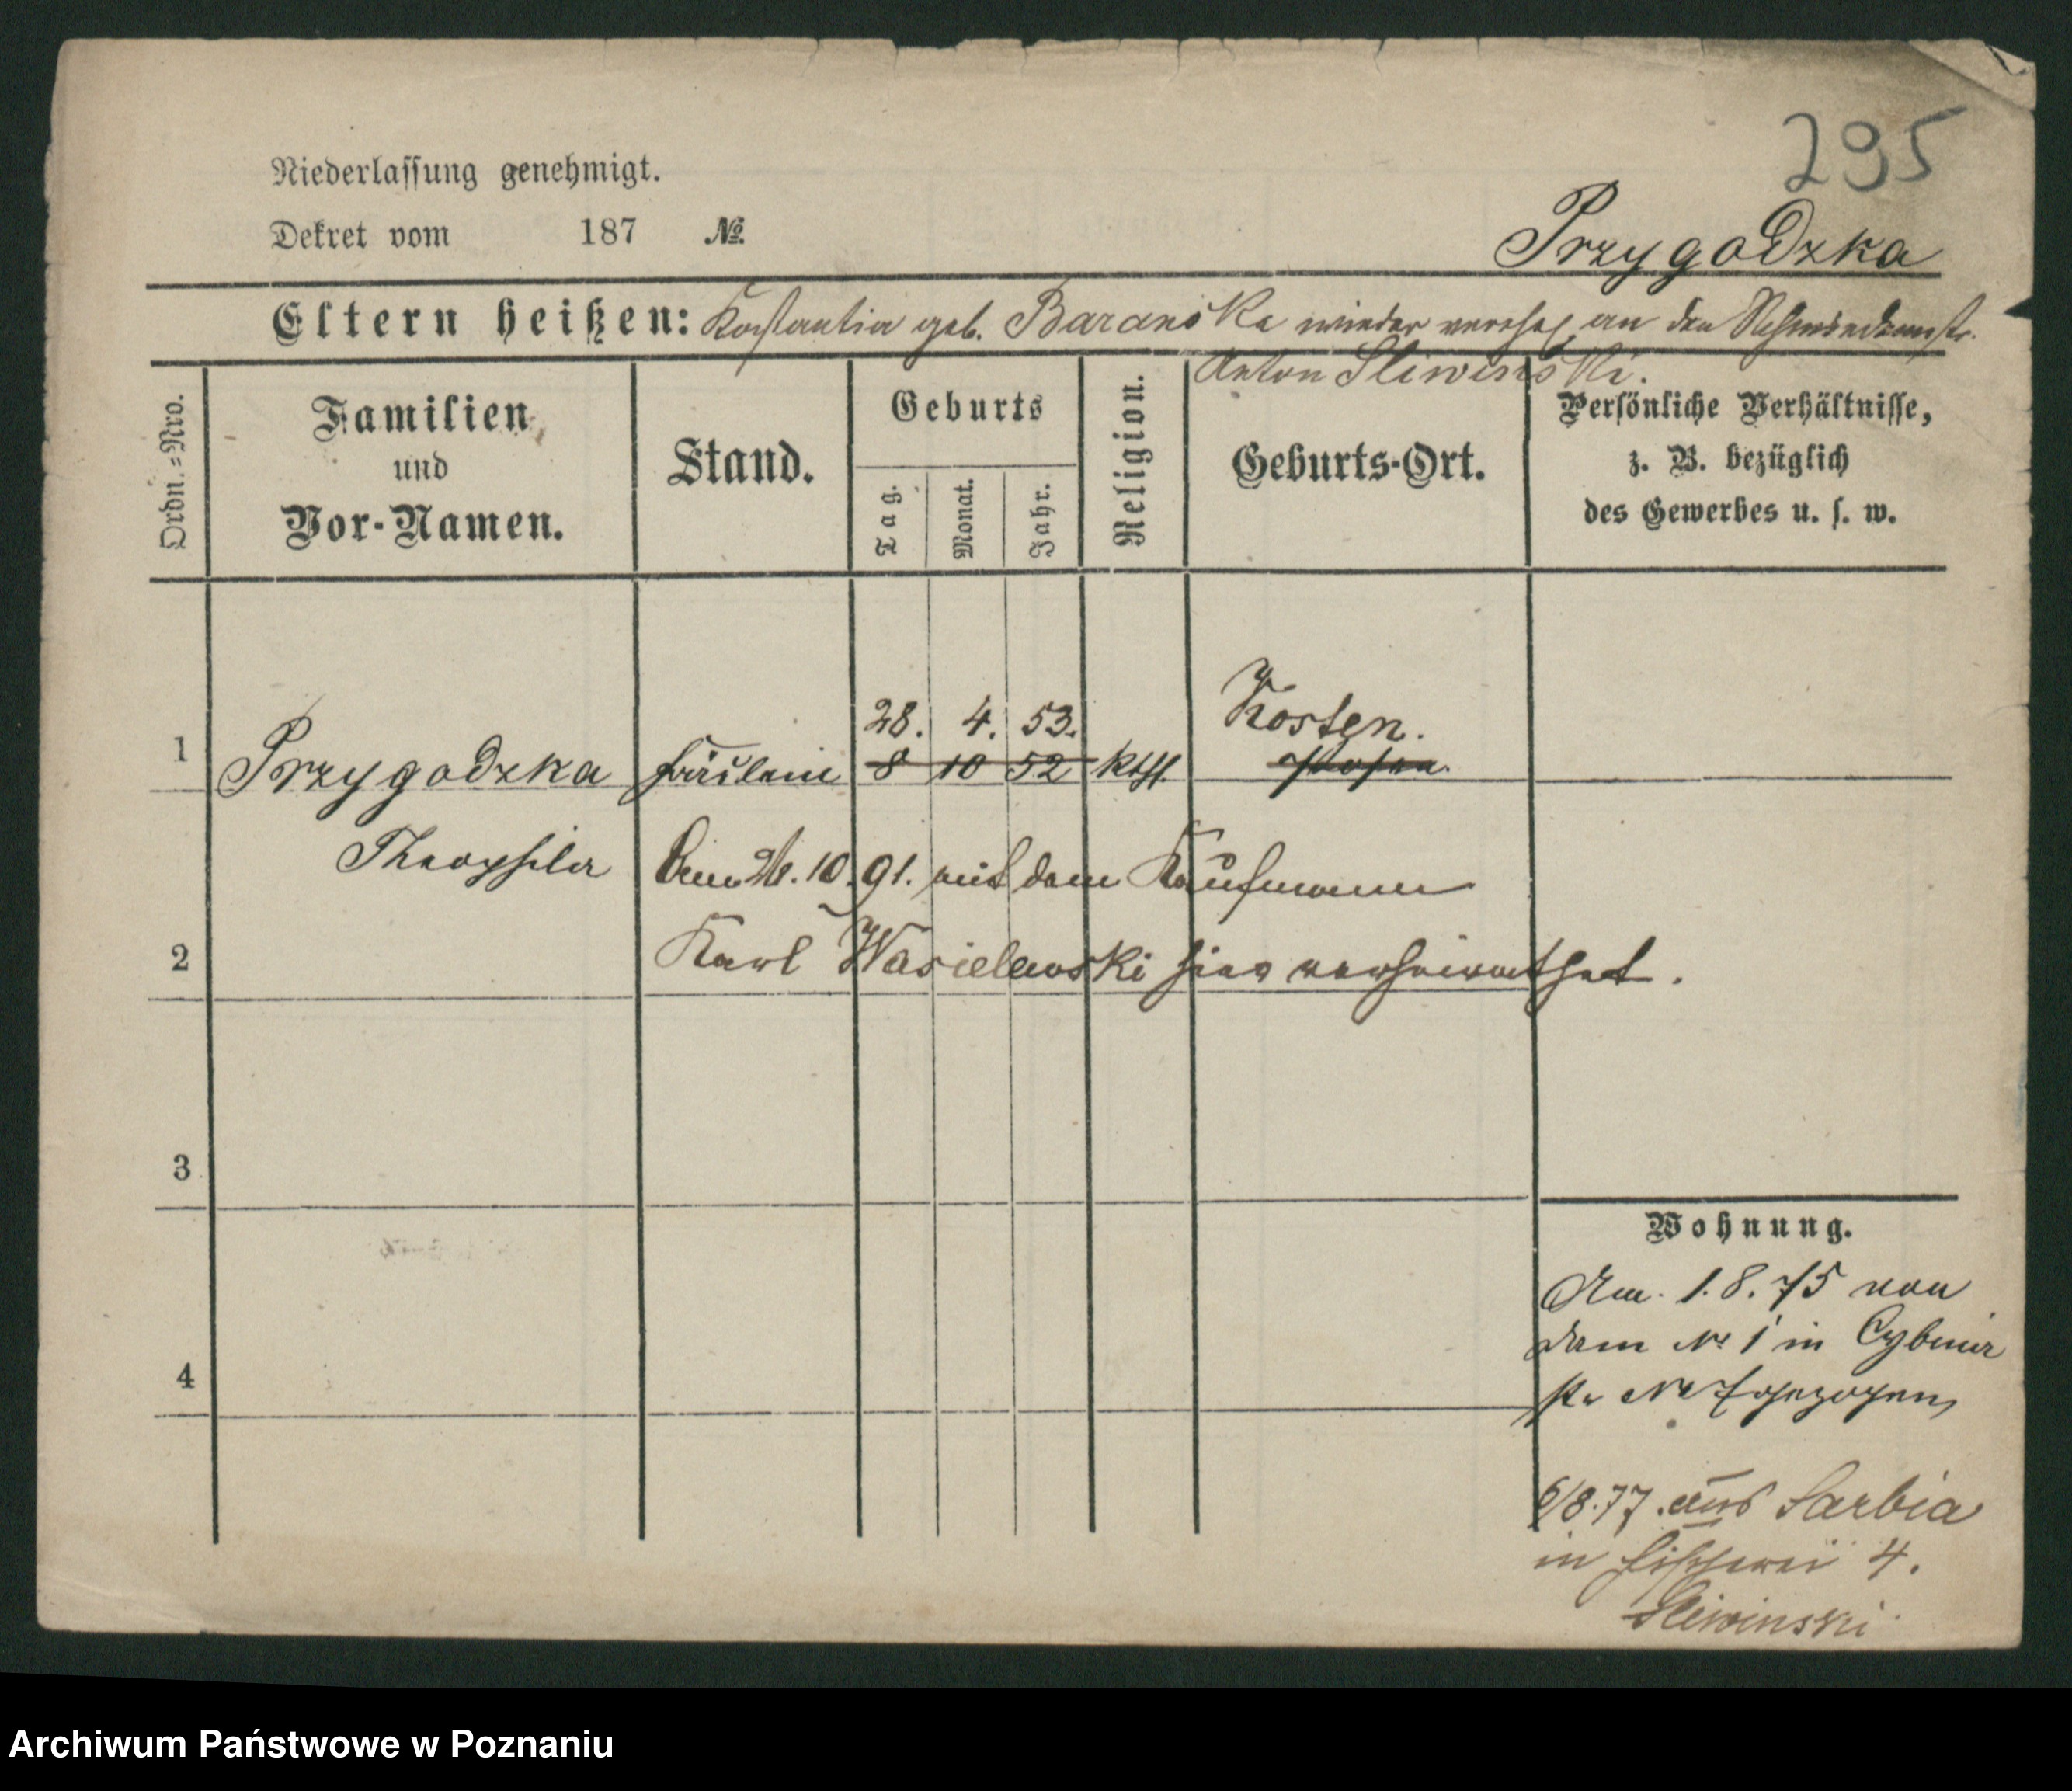 295
Niederlassung genehmigt.
Dekret vom 187 №.
Przygodzka
Eltern heißen: Konstantia geb. Baranoska wieder vereh. an den
Anton Sliwinski.
Ordn.=Nro.
Familien und Vor-Namen.
Stand.
Geburts
Tag. Monat. Jahr.
Religion.
Geburts-Ort.
Persönliche Verhältnisse,
z. B. bezüglich
des Gewerbes u. s. w.
28. 4. 53. Kosten.
1 Przygodzka Fräulein 8 10 52 kth. Posen.
Theophila Den 26. 10. 91. mit dem Kaufmann
2 Karl Wasielewski hier verheirathet.
3
4
Wohnung.
Am 1. 8. 75 von
dem № 1 in Cybina
str № 7 gezogen,
6/8. 77. aus Sarbia
in Fischerei 4.
Sliwinski
Archiwum Państwowe w Poznaniu